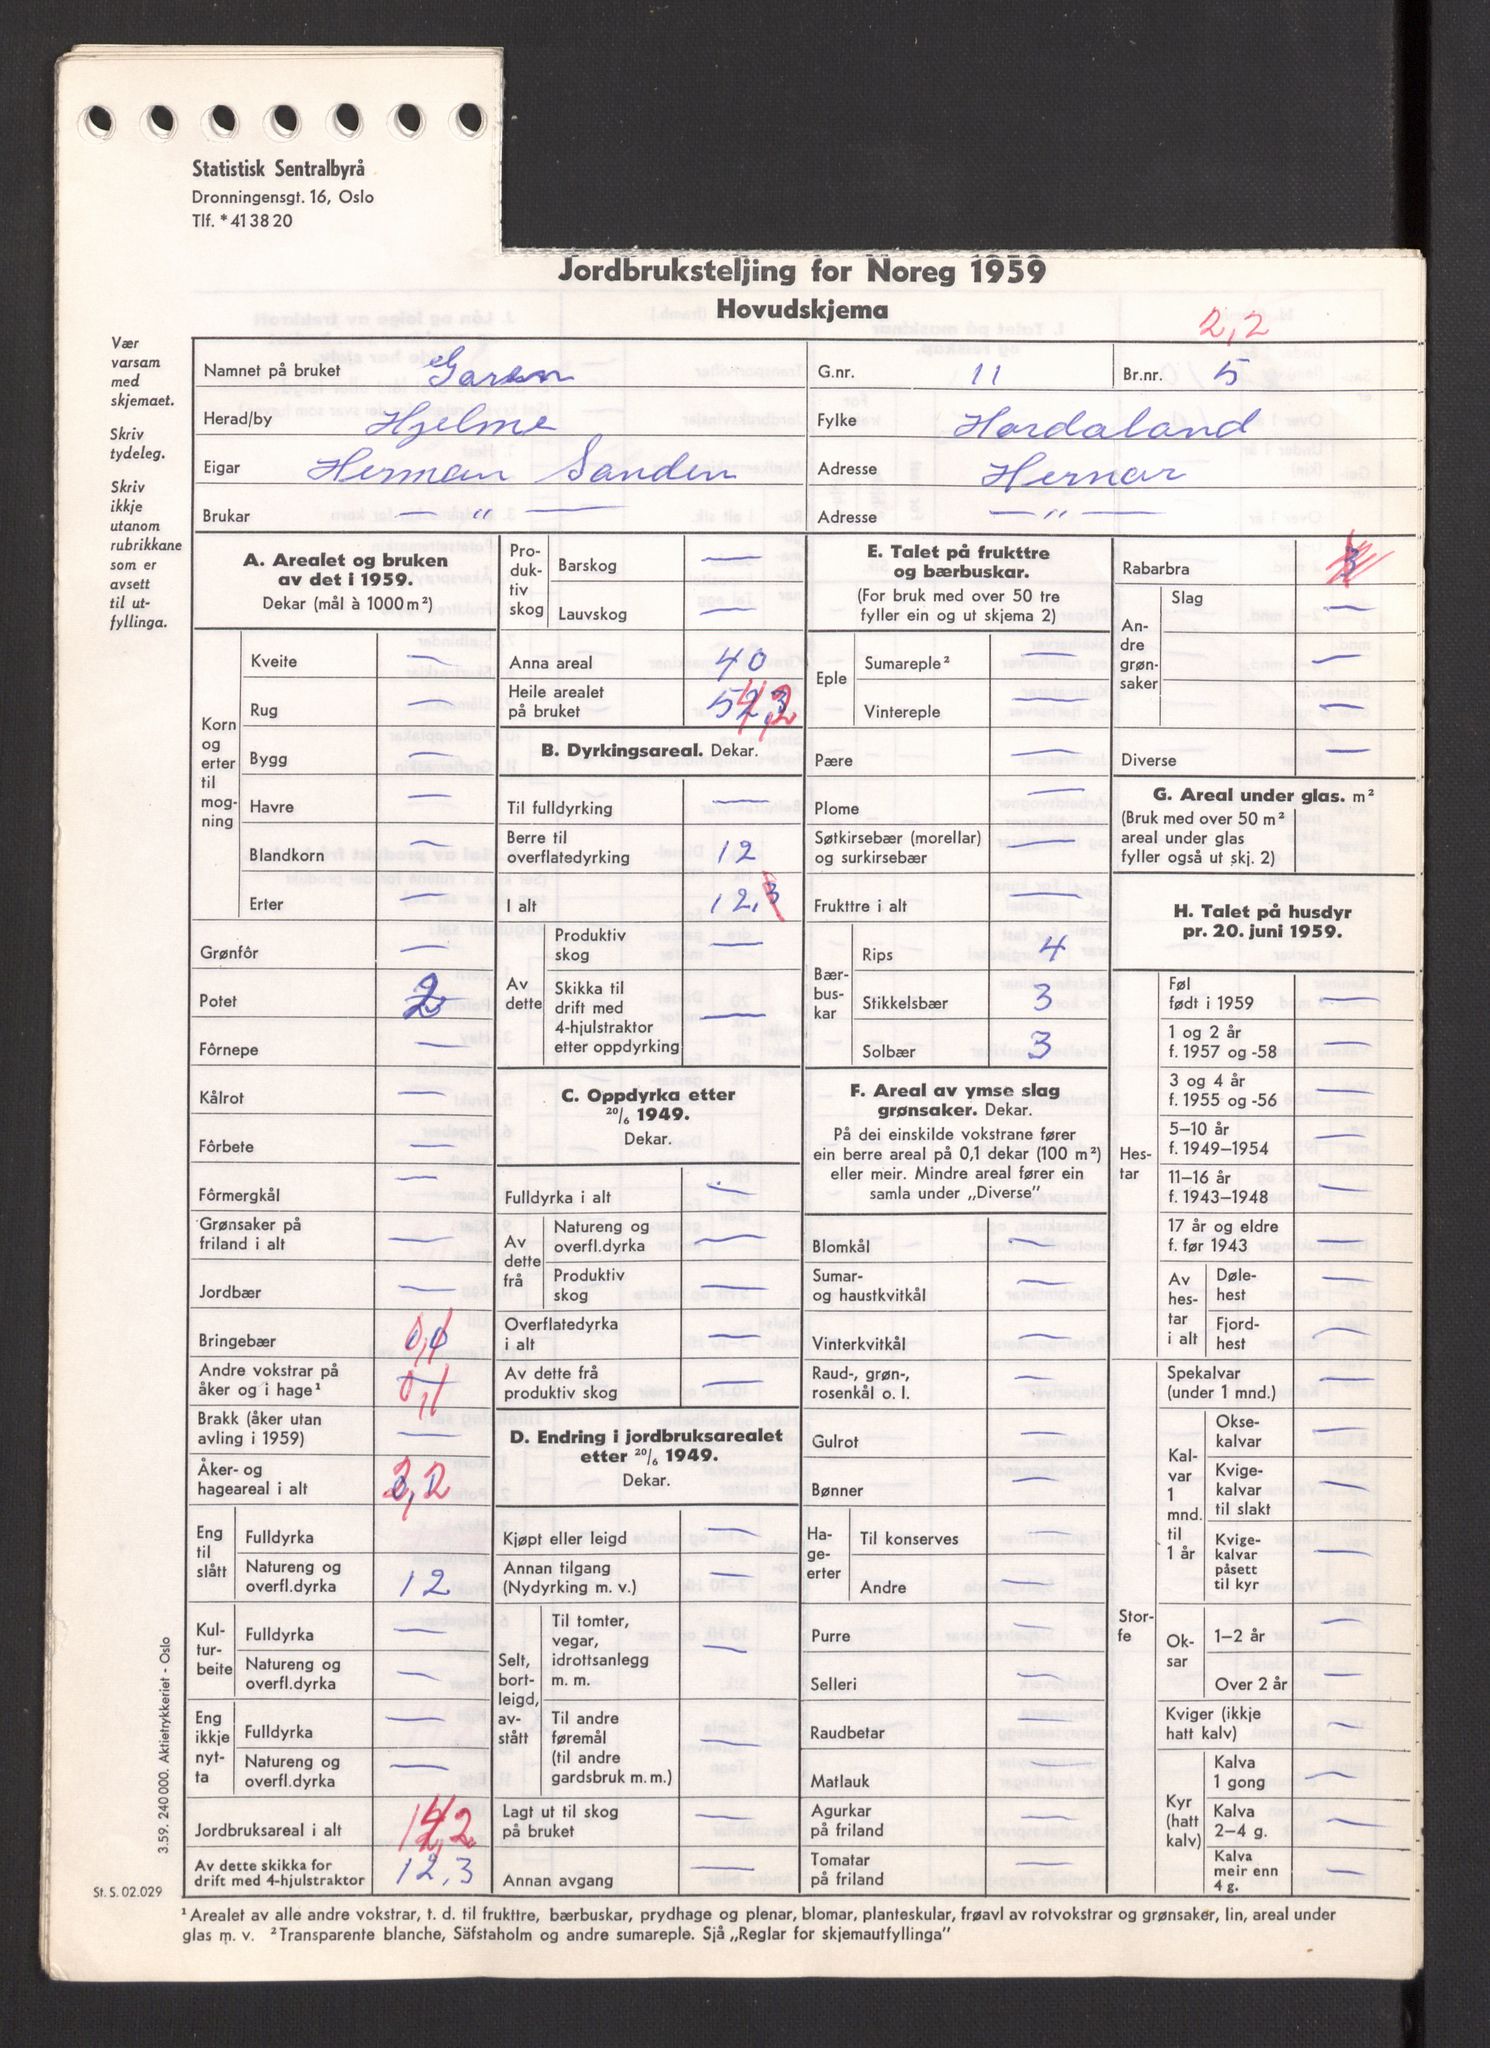 Statistisk Sentralbyrå
Dronningensgt. 16, Oslo
Tlf. * 41 38 20
Jordbruksteljing for Noreg 1959
Hovudskjema
2,2
Vær
varsam
med
skjemaet.
Skriv
tydeleg.
Skriv
ikkje
utanom
rubrikkane
som er
avsett
til ut-
fyllinga.
Namnet på bruket
G.nr. 11 Br.nr. 5
Herad/by Hjelme Fylke Hordaland
Eigar Herman Sanden Adresse Hernar
Brukar — " — Adresse — " —
A. Arealet og bruken
av det i 1959.
Dekar (mål à 1000 m²)
Korn
og
erter
til
mog-
ning
Kveite —
Rug —
Bygg —
Havre —
Blandkorn —
Erter —
Grønfôr —
Potet 2
Fôrnepe —
Kålrot —
Fôrbete —
Fôrmergkål —
Grønsaker på
friland i alt —
Jordbær —
Bringebær 0,1
Andre vokstrar på
åker og i hage¹ 0,1
Brakk (åker utan
avling i 1959) —
Åker- og
hageareal i alt 2,2
Eng
til
slått
Fulldyrka
Natureng og
overfl.dyrka 12
Kul-
tur-
beite
Fulldyrka —
Natureng og
overfl.dyrka —
Eng
ikkje
nyt-
ta
Fulldyrka —
Natureng og
overfl.dyrka —
Jordbruksareal i alt 14,2
Av dette skikka for
drift med 4-hjulstraktor 12,3
Pro-
duk-
tiv
skog
Barskog —
Lauvskog —
Anna areal 40
Heile arealet
på bruket 54,2
B. Dyrkingsareal. Dekar.
Til fulldyrking —
Berre til
overflatedyrking 12
I alt 12,3
Av
dette
Produktiv
skog —
Skikka til
drift med
4-hjulstraktor
etter oppdyrking —
C. Oppdyrka etter
20/6 1949.
Dekar.
Fulldyrka i alt —
Av
dette
frå
Natureng og
overfl.dyrka —
Produktiv
skog —
Overflatedyrka
i alt —
Av dette frå
produktiv skog —
D. Endring i jordbruksarealet
etter 20/6 1949.
Dekar.
Kjøpt eller leigd —
Annan tilgang
(Nydyrking m. v.) —
Selt,
bort-
leigd,
av-
stått
Til tomter,
vegar,
idrottsanlegg
m. m. —
Til andre
føremål
(til andre
gardsbruk m. m.) —
Lagt ut til skog
på bruket —
Annan avgang —
E. Talet på frukttre
og bærbuskar.
(For bruk med over 50 tre
fyller ein og ut skjema 2)
Eple
Sumareple² —
Vintereple —
Pære —
Plome —
Søtkirsebær (morellar)
og surkirsebær —
Frukttre i alt —
Bær-
bus-
kar
Rips 4
Stikkelsbær 3
Solbær 3
F. Areal av ymse slag
grønsaker. Dekar.
På dei einskilde vokstrane fører
ein berre areal på 0,1 dekar (100 m²)
eller meir. Mindre areal fører ein
samla under „Diverse”
Blomkål —
Sumar-
og haustkvitkål —
Vinterkvitkål —
Raud-, grøn-,
rosenkål o. l. —
Gulrot —
Bønner —
Ha-
ge-
erter
Til konserves —
Andre —
Purre —
Selleri —
Raudbetar —
Matlauk —
Agurkar
på friland —
Tomatar
på friland —
Rabarbra 3
An-
dre
grøn-
saker
Slag —
—
—
Diverse —
G. Areal under glas. m²
(Bruk med over 50 m²
areal under glas
fyller også ut skj. 2)
H. Talet på husdyr
pr. 20. juni 1959.
Hes-
tar
Føl
født i 1959 —
1 og 2 år
f. 1957 og -58 —
3 og 4 år
f. 1955 og -56 —
5–10 år
f. 1949–1954 —
11–16 år
f. 1943–1948 —
17 år og eldre
f. før 1943 —
Av
hes-
tar
i alt
Døle-
hest —
Fjord-
hest —
Stor-
fe
Spekalvar
(under 1 mnd.) —
Kal-
var
1
mnd.
til
1 år
Okse-
kalvar —
Kvige-
kalvar
til slakt —
Kvige-
kalvar
påsett
til kyr —
Ok-
sar
1–2 år —
Over 2 år —
Kviger (ikkje
hatt kalv) —
Kyr
(hatt
kalv)
Kalva
1 gong —
Kalva
2–4 g. —
Kalva
meir enn
4 g. —
3.59. 240 000. Aktietrykkeriet - Oslo
St. S. 02.029
¹ Arealet av alle andre vokstrar, t. d. til frukttre, bærbuskar, prydhage og plenar, blomar, planteskular, frøavl av rotvokstrar og grønsaker, lin, areal under
glas m. v. ² Transparente blanche, Säfstaholm og andre sumareple. Sjå „Reglar for skjemautfyllinga”